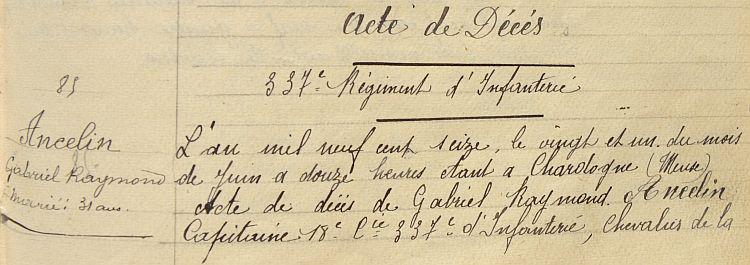 Acte de Décés
337e Régiment d'Infanterie
85
Ancelin
Gabriel Raymond
Marié: 31 ans.
L'an mil neuf cent seize, le vingt et un du mois
de Juin a douze heures étant a Chardogne (Meuse)
Acte de décès de Gabriel Raymond. Ancelin
Capitaine 18e Cie 337e d'Infanterie, Chevalier de la